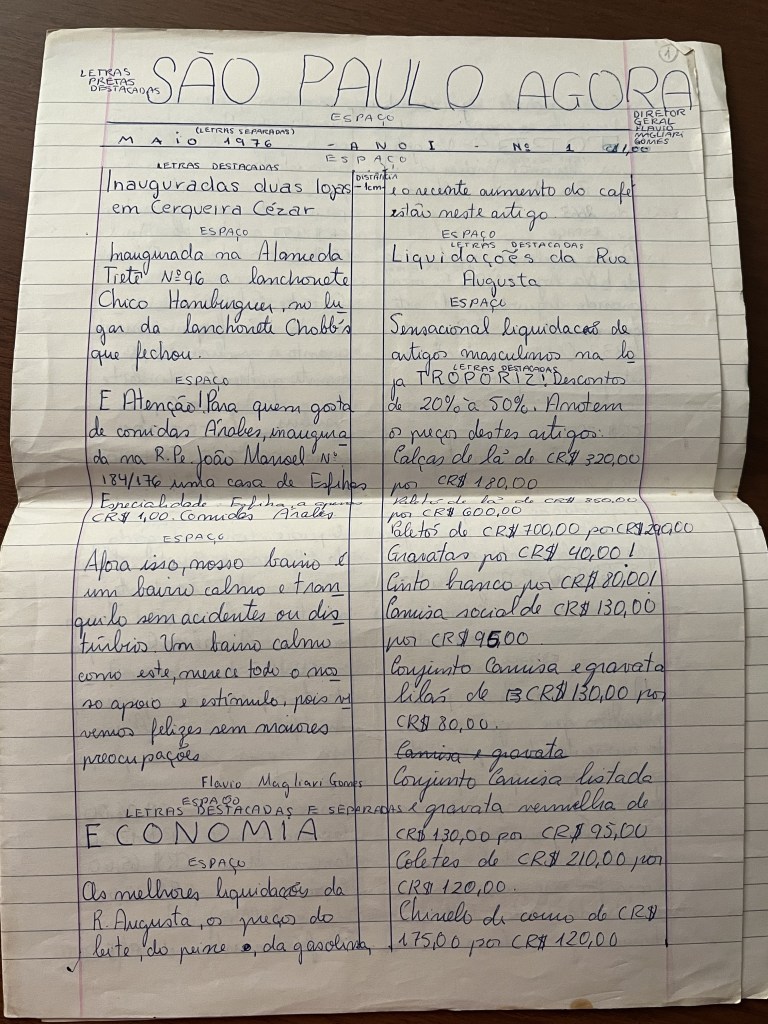 1
LETRAS
PRETAS
DESTACADAS
SÃO PAULO AGORA
ESPAÇO
DIRETOR
GERAL
FLAVIO
MAGLIARI
GOMES
(LETRAS SEPARADAS)
MAIO 1976 - ANO I - Nº 1 1,00
ESPAÇO
LETRAS DESTACADAS
Inauguradas duas lojas
em Cerqueira Cézar
ESPAÇO
Inaugurada na Alameda
Tietê Nº 96 a lanchonete
Chico Hamburguer, no lu-
gar da lanchonete Chobb's
que fechou.
ESPAÇO
E Atenção! Para quem gosta
de comidas Árabes, inaugura-
da na R. Pe. João Manoel Nº
184/176 uma casa de Esfihas
Especialidade Esfiha, a
CR$ 1,00. Comidas Árabes
ESPAÇO
Afora isso, nosso bairro é
um bairro calmo e tran-
quilo sem acidentes ou dis-
túrbios. Um bairro calmo
como este, merece todo o nos-
so apoio e estímulo, pois vi-
vemos felizes sem maiores
preocupações
Flavio Magliari Gomes
ESPAÇO
LETRAS DESTACADAS E SEPARADAS
ECONOMIA
ESPAÇO
As melhores liquidações da
R. Augusta, os preços do
leite, do peixe, da gasolina,
DISTÂNCIA
-1cm-
e o recente aumento do café
estão neste artigo.
ESPAÇO
LETRAS DESTACADAS
Liquidações da Rua
Augusta
ESPAÇO
Sensacional liquidacão de
artigos masculinos na lo-
LETRAS DESTACADAS
ja TROPORIZ! Descontos
de 20% à 50%. Anotem
o preço destes artigos:
Calças de lã de CR$ 320,00
por CR$ 180,00
Paletós de lã de CR$ 850,00
por CR$ 600,00
Paletós de CR$ 700,00 por CR$ 290,00
Gravatas por CR$ 40,00!
Cinto branco por CR$ 80,00!
Camisa social de CR$ 130,00
por CR$ 95,00
Conjunto Camisa e gravata
lilás de CR$ 130,00 por
CR$ 80,00.
Camisa e gravata
Conjunto Camisa listada
e gravata vermelha de
CR$ 130,00 por CR$ 95,00
Coletes de CR$ 210,00 por
CR$ 120,00.
Chinelo de couro de CR$
175,00 por CR$ 120,00